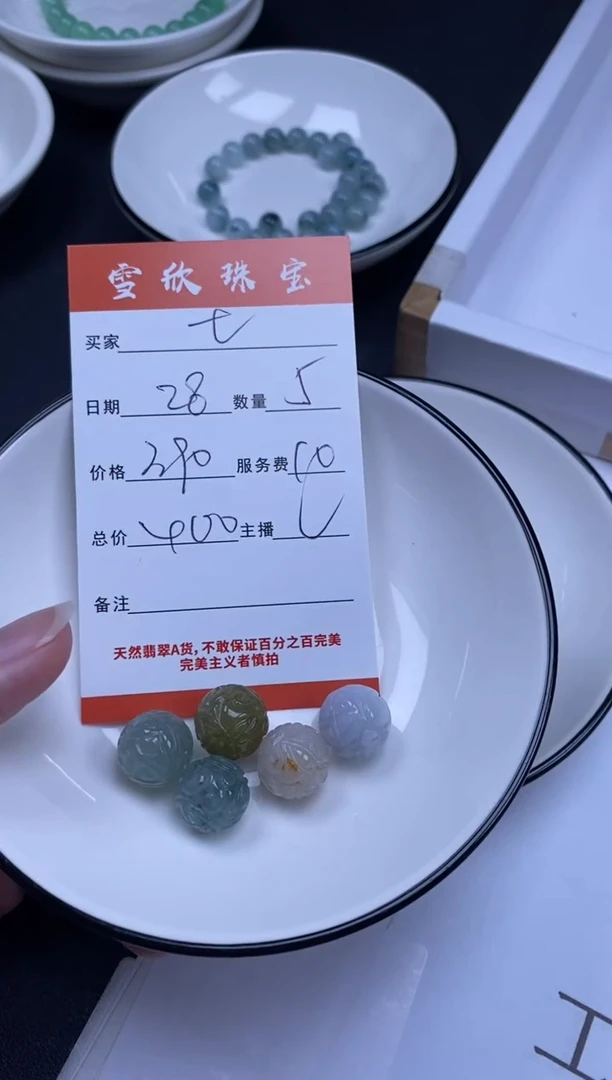 雪欣珠宝
买家 七
日期 28 数量 5
价格 390 服务费 10
总价 400 主播
备注
天然翡翠A货，不敢保证百分之百完美
完美主义者慎拍